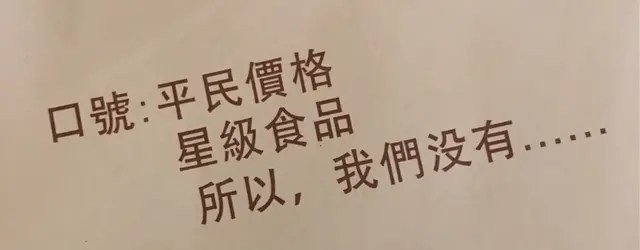 口號:平民價格
星級食品
所以，我們没有……